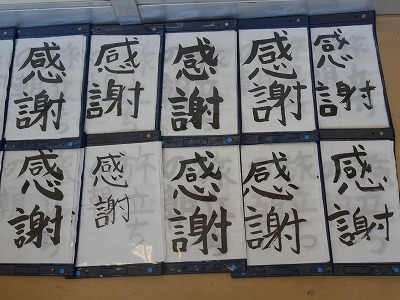 感謝
感謝
感謝
感謝
感謝
感謝
感謝
感謝
感謝
感謝